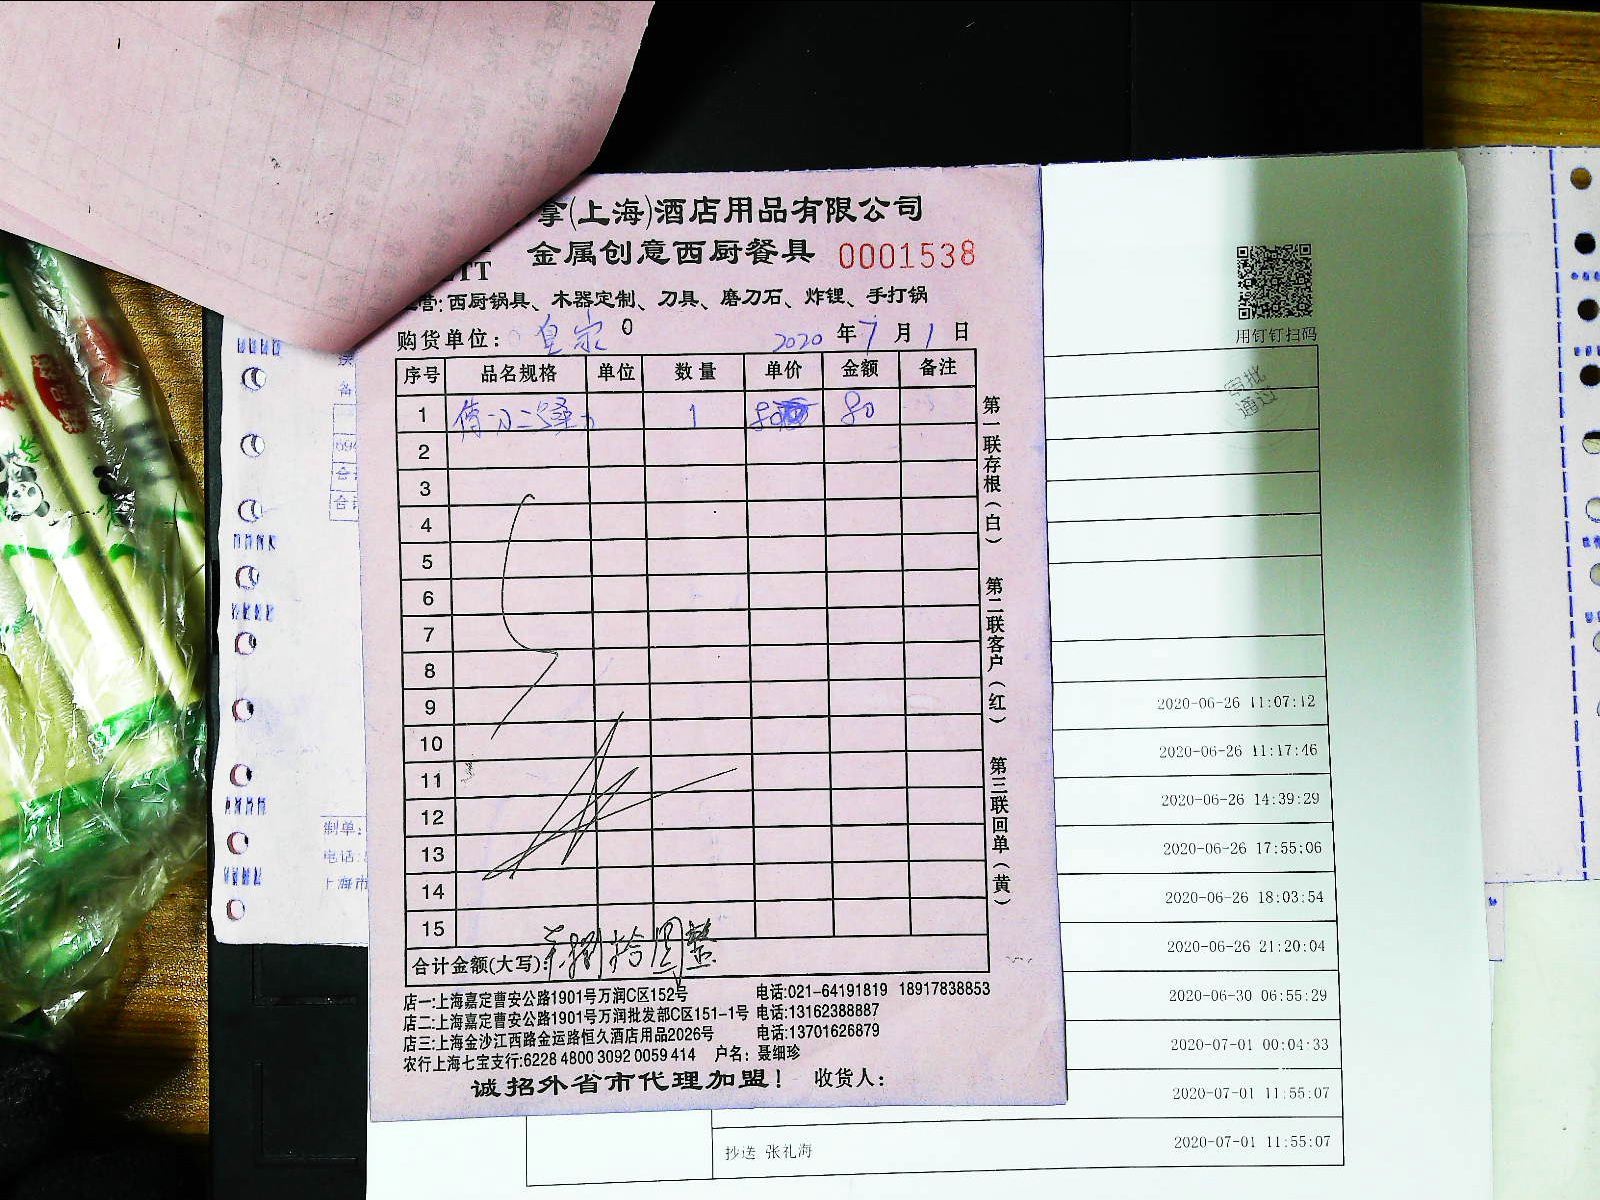 拿(上海)酒店用品有限公司
金属创意西厨餐具 0001538
TT
营:西厨锅具、木器定制、刀具、磨刀石、炸锂、手打锅
购货单位: 皇家 2020 年 7 月 1 日
序号 品名规格 单位 数量 单价 金额 备注
1 1 80 80
2
3
4
5
6
7
8
9
10
11
12
13
14
15
合计金额(大写): 捌拾圆整
第一联存根(白) 第二联客户(红) 第三联回单(黄)
店一:上海嘉定曹安公路1901号万润C区152号 电话:021-64191819 18917838853
店二:上海嘉定曹安公路1901号万润批发部C区151-1号 电话:13162388887
店三:上海金沙江西路金运路恒久酒店用品2026号 电话:13701626879
农行上海七宝支行:6228 4800 3092 0059 414 户名:聂细珍
诚招外省市代理加盟! 收货人:
用钉钉扫码
审批
通过
2020-06-26 11:07:12
2020-06-26 11:17:46
2020-06-26 14:39:29
2020-06-26 17:55:06
2020-06-26 18:03:54
2020-06-26 21:20:04
2020-06-30 06:55:29
2020-07-01 00:04:33
2020-07-01 11:55:07
抄送 张礼海 2020-07-01 11:55:07
制单:
电话:
上海市